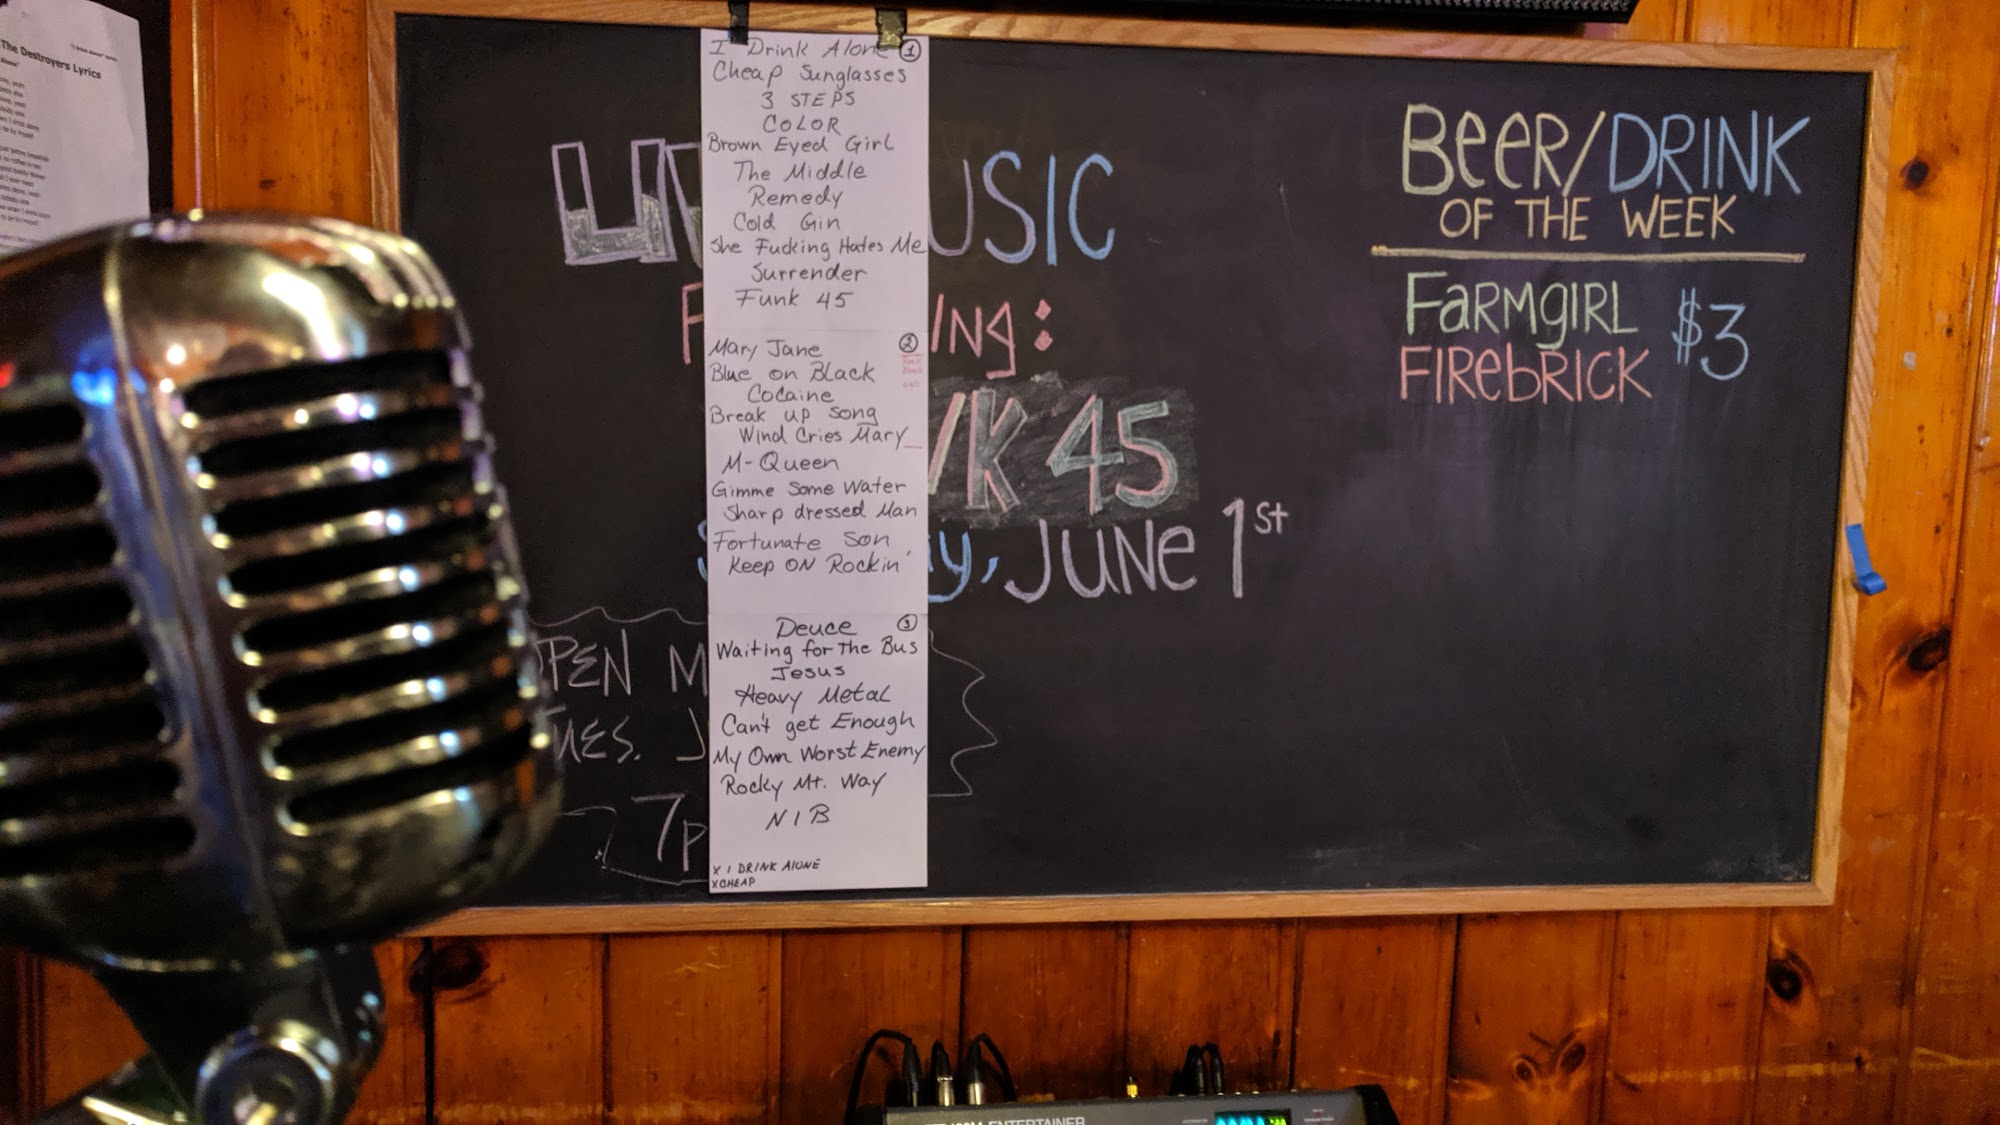 The Destroyers Lyrics
"I Drink Alone" lyrics
Alone"
I Drink Alone 1
Cheap Sunglasses
3 STEPS
COLOR
Brown Eyed Girl
The Middle
Remedy
Cold Gin
She Fucking Hates Me
Surrender
Funk 45
Mary Jane 2
Blue on Black
Cocaine
Break up Song
Wind Cries Mary
M-Queen
Gimme Some Water
Sharp dressed Man
Fortunate Son
Keep ON Rockin'
Deuce 3
Waiting for The Bus
Jesus
Heavy Metal
Can't get Enough
My Own Worst Enemy
Rocky Mt. Way
NIB
X I DRINK ALONE
X CHEAP
USIC
ING:
K 45
y, JUNE 1st
PEN M
UES. J
7p
BEER/DRINK
OF THE WEEK
FARMGIRL
FIREBRICK $3
ENTERTAINER